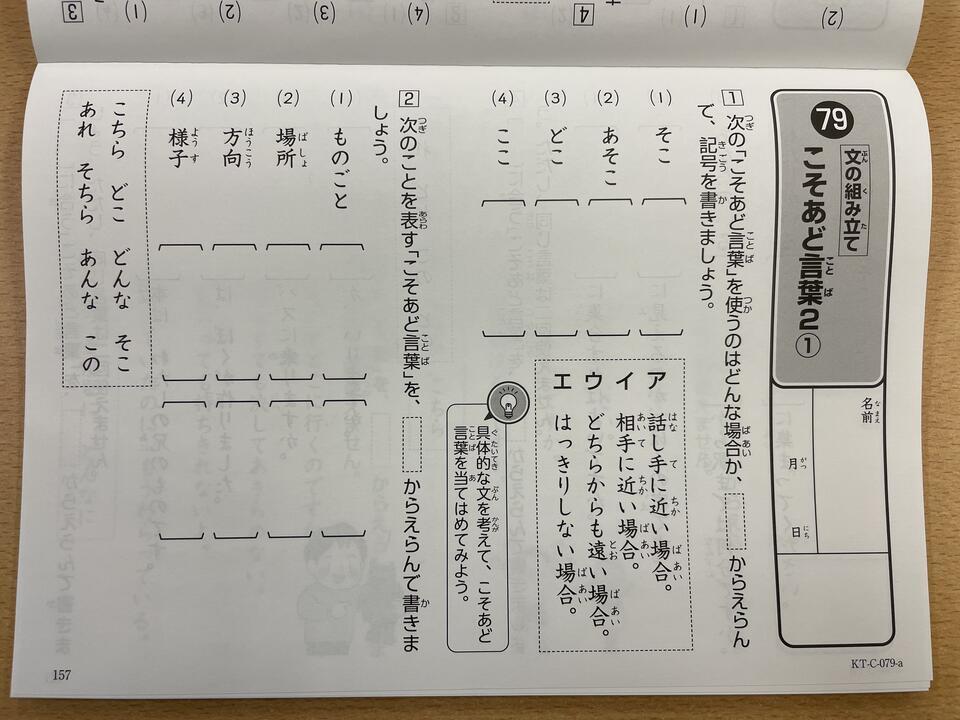 (1)
(2)
(3)
(1)
3
4
(1)
(2)
79
文の組み立て
こそあど言葉2①
名前
月
日
1 次の「こそあど言葉」を使うのはどんな場合か、 からえらん
で、記号を書きましょう。
(1) そこ
(2) あそこ
(3) どこ
(4) ここ
ア 話し手に近い場合。
イ 相手に近い場合。
ウ どちらからも遠い場合。
エ はっきりしない場合。
具体的な文を考えて、こそあど
言葉を当てはめてみよう。
2 次のことを表す「こそあど言葉」を、 からえらんで書きま
しょう。
(1) ものごと
(2) 場所
(3) 方向
(4) 様子
こちら どこ どんな そこ
あれ そちら あんな この
157
KT-C-079-a